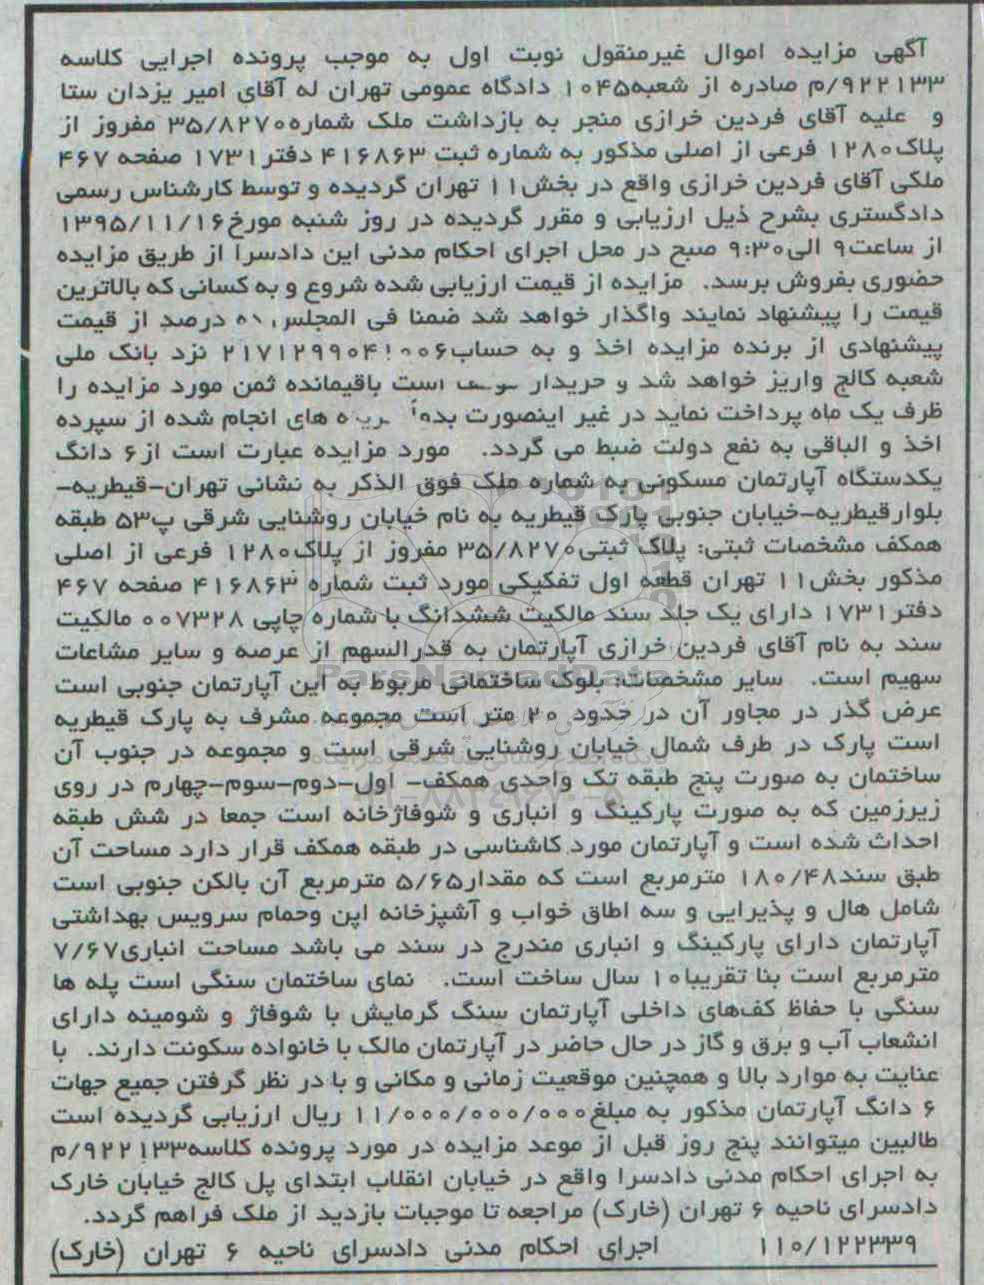 آگهی مزایده اموال غیرمنقول نوبت اول به موجب پرونده اجرایی کلاسه
۹۲۲۱۳۳/م صادره از شعبه۱۰۴۵ دادگاه عمومی تهران له آقای امیر یزدان ستا
و علیه آقای فردین خرازی منجر به بازداشت ملک شماره۳۵/۸۲۷۰ مفروز از
پلاک۱۲۸۰ فرعی از اصلی مذکور به شماره ثبت ۴۱۶۸۶۳ دفتر۱۷۳۱ صفحه ۴۶۷
ملکی آقای فردین خرازی واقع در بخش۱۱ تهران گردیده و توسط کارشناس رسمی
دادگستری بشرح ذیل ارزیابی و مقرر گردیده در روز شنبه مورخ۱۳۹۵/۱۱/۱۶
از ساعت۹ الی۹:۳۰ صبح در محل اجرای احکام مدنی این دادسرا از طریق مزایده
حضوری بفروش برسد. مزایده از قیمت ارزیابی شده شروع و به کسانی که بالاترین
قیمت را پیشنهاد نمایند واگذار خواهد شد ضمنا فی المجلس درصد از قیمت
پیشنهادی از برنده مزایده اخذ و به حساب۲۱۷۱۲۹۹۰۴۱۰۰۶ نزد بانک ملی
شعبه کالج واریز خواهد شد و خریدار است باقیمانده ثمن مورد مزایده را
ظرف یک ماه پرداخت نماید در غیر اینصورت های انجام شده از سپرده
اخذ و الباقی به نفع دولت ضبط می گردد. مورد مزایده عبارت است از۶ دانگ
یکدستگاه آپارتمان مسکونی به شماره ملک فوق الذکر به نشانی تهران-قیطریه-
بلوارقیطریه-خیابان جنوبی پارک قیطریه به نام خیابان روشنایی شرقی پ۵۳ طبقه
همکف مشخصات ثبتی: پلاک ثبتی۳۵/۸۲۷۰ مفروز از پلاک۱۲۸۰ فرعی از اصلی
مذکور بخش۱۱ تهران قطعه اول تفکیکی مورد ثبت شماره ۴۱۶۸۶۳ صفحه ۴۶۷
دفتر۱۷۳۱ دارای یک جلد سند مالکیت ششدانگ با شماره چاپی ۰۰۷۳۲۸ مالکیت
سند به نام آقای فردین خرازی آپارتمان به قدرالسهم از عرصه و سایر مشاعات
سهیم است. سایر مشخصات: بلوک ساختمانی مربوط به این آپارتمان جنوبی است
عرض گذر در مجاور آن در حدود ۲۰ متر است مجموعه مشرف به پارک قیطریه
است پارک در طرف شمال خیابان روشنایی شرقی است و مجموعه در جنوب آن
ساختمان به صورت پنج طبقه تک واحدی همکف- اول-دوم-سوم-چهارم در روی
زیرزمین که به صورت پارکینگ و انباری و شوفاژخانه است جمعا در شش طبقه
احداث شده است و آپارتمان مورد کاشناسی در طبقه همکف قرار دارد مساحت آن
طبق سند۱۸۰/۴۸ مترمربع است که مقدار۵/۶۵ مترمربع آن بالکن جنوبی است
شامل هال و پذیرایی و سه اطاق خواب و آشپزخانه اپن وحمام سرویس بهداشتی
آپارتمان دارای پارکینگ و انباری مندرج در سند می باشد مساحت انباری۷/۶۷
مترمربع است بنا تقریبا۱۰ سال ساخت است. نمای ساختمان سنگی است پله ها
سنگی با حفاظ کف‌های داخلی آپارتمان سنگ گرمایش با شوفاژ و شومینه دارای
انشعاب آب و برق و گاز در حال حاضر در آپارتمان مالک با خانواده سکونت دارند. با
عنایت به موارد بالا و همچنین موقعیت زمانی و مکانی و با در نظر گرفتن جمیع جهات
۶ دانگ آپارتمان مذکور به مبلغ۱۱/۰۰۰/۰۰۰/۰۰۰ ریال ارزیابی گردیده است
طالبین میتوانند پنج روز قبل از موعد مزایده در مورد پرونده کلاسه۹۲۲۱۳۳/م
به اجرای احکام مدنی دادسرا واقع در خیابان انقلاب ابتدای پل کالج خیابان خارک
دادسرای ناحیه ۶ تهران (خارک) مراجعه تا موجبات بازدید از ملک فراهم گردد.
۱۱۰/۱۲۲۳۳۹ اجرای احکام مدنی دادسرای ناحیه ۶ تهران (خارک)